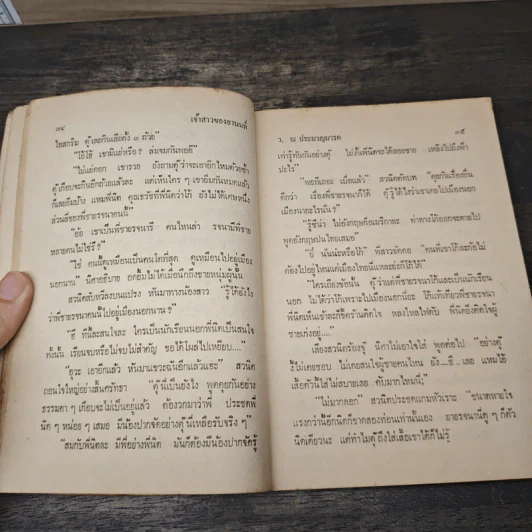 ๓๔
เจ้าสาวของอานนท์
ไอสกรีม ดู๊เลยกินเสียตั้ง ๓ ถ้วย"
"โอ้โฮ้ เขามีแย่หรือ? ล่มจมกันพอดี"
"ไม่แย่ดอก เขารวย ยังถามดู๊ว่าจะเอาอีกไหมด้วยซ้ำ
ดู๊เกือบจะกินอีกถ้วยแล้วละ แต่เห็นใครๆ เขาอิ่มกันหมดแล้ว
ก็เลยอิ่มบ้าง แหมพี่นิด คุณเชรชที่พี่นิดว่าโก้ ยังไม่ได้เศษหนึ่ง
ส่วนสี่ของพี่ชายรจนาคนนี้"
"อ๋อ เขาเป็นพี่ชายรจนารึ คนไหนล่ะ รจนามีพี่ชาย
หลายคนไม่ใช่รึ?"
"ใช่ คนนี้ดูเหมือนเป็นคนโตที่สุด ดูเหมือนไปอยู่เมือง
นอกนาน" นิศาอธิบาย อดยิ้มไม่ได้เมื่อนึกถึงชายหนุ่มผู้นั้น
สวนิตสับหวีลงบนแปรง หันมาทางน้องสาว "รู้ได้ยังไง
ว่าพี่ชายรจนาคนนี้ไปอยู่เมืองนอกนาน?"
"อี๋ พี่นี้ละสนใจละ ใครเป็นนักเรียนนอกพี่นิดเป็นสนใจ
ทั้งนั้น เรียนจบหรือไม่จบไม่สำคัญ ขอได้โผล่ไปเหยียบ...."
"อุวะ เอาอีกแล้ว หันมาแขวะฉันอีกแล้วแฮะ" สวนิต
ถอนใจใหญ่อย่างสิ้นศรัทธา "ดู๊นี่เป็นยังไง พูดคุยกันอย่าง
ธรรมดาๆ เกือบจะไม่เป็นอยู่แล้ว ต้องวกมาว่าพี่ ประชดพี่
นิดๆ หน่อยๆ เสมอ มีน้องปากจัดอย่างดู๊นี่เหลือรับจริงๆ"
"สมกับพี่นิดละ มีพี่อย่างพี่นิด มันก็ต้องมีน้องปากจัดรู้
ว. ณ ประมวญมารค
๓๕
เท่ารู้ทันกันอย่างดู๊ ไม่งั้นพี่นิดจะได้เลยชาย เหลิงไปถึงดำ
ปะไร"
"พอทีเถอะ เบื่อแล้ว" สวนิตตัดบท "คุยกันเรื่องอื่น
ดีกว่า เรื่องพี่ชายรจนาก็ได้ ดู๊รู้ได้ไงว่าเขาเคยไปเมืองนอก
เมืองนาอะไรนั่น?"
"รู้ซีน่า ไม่อังกฤษก็อเมริกาละ ท่าทางโก้ออกจะตายไป
พูดอังกฤษปนไทยเสมอ"
"อี๋ นั่นน่ะหรือโก้" พี่สาวขัดคอ "คนที่เขาโก้ละก้อไม่
ต้องไปอยู่ไหนแค่เมืองไทยนี่แหละย่ะก็โก้ได้"
"ใครเถียงข้อนั้น ดู๊ว่าแค่พี่ชายรจนาโก้และเป็นนักเรียน
นอก ไม่ได้ว่าโก้เพราะไปเมืองนอกนี่ยะ โก้แท้เทียวพี่ชายรจนา
พี่นิดเห็นเข้าละก้อช็คว้านติดใจ หลงใหลโฟดับ พี่นิดยิ่งคิดถึงผู้
ชายเก่งอยู่...."
เสียงสวนิตร้องจู้ นิศาไม่เอาใจใส่ พูดต่อไป "อย่างดู๊
งี้ไม่เคยชอบ ไม่เคยสนใจผู้ชายคนไหน ยัง....ชี้....เลย แหมโธ้
เสื้อตัวนี้ใส่ไม่สบายเลย คับมากไหมคะ"
"ไม่มากดอก" สวนิตประชดแกมหัวเราะ "ขนาดหายใจ
แรงกว่านี้อีกนิดก็ขาดสองท่อนเท่านั้นเอง ยายรจนานี่ดูๆ ก็ตัว
นิดเดียวนะ แต่ทำไมดู๊ถึงใส่เสื้อเขาได้ก็ไม่รู้